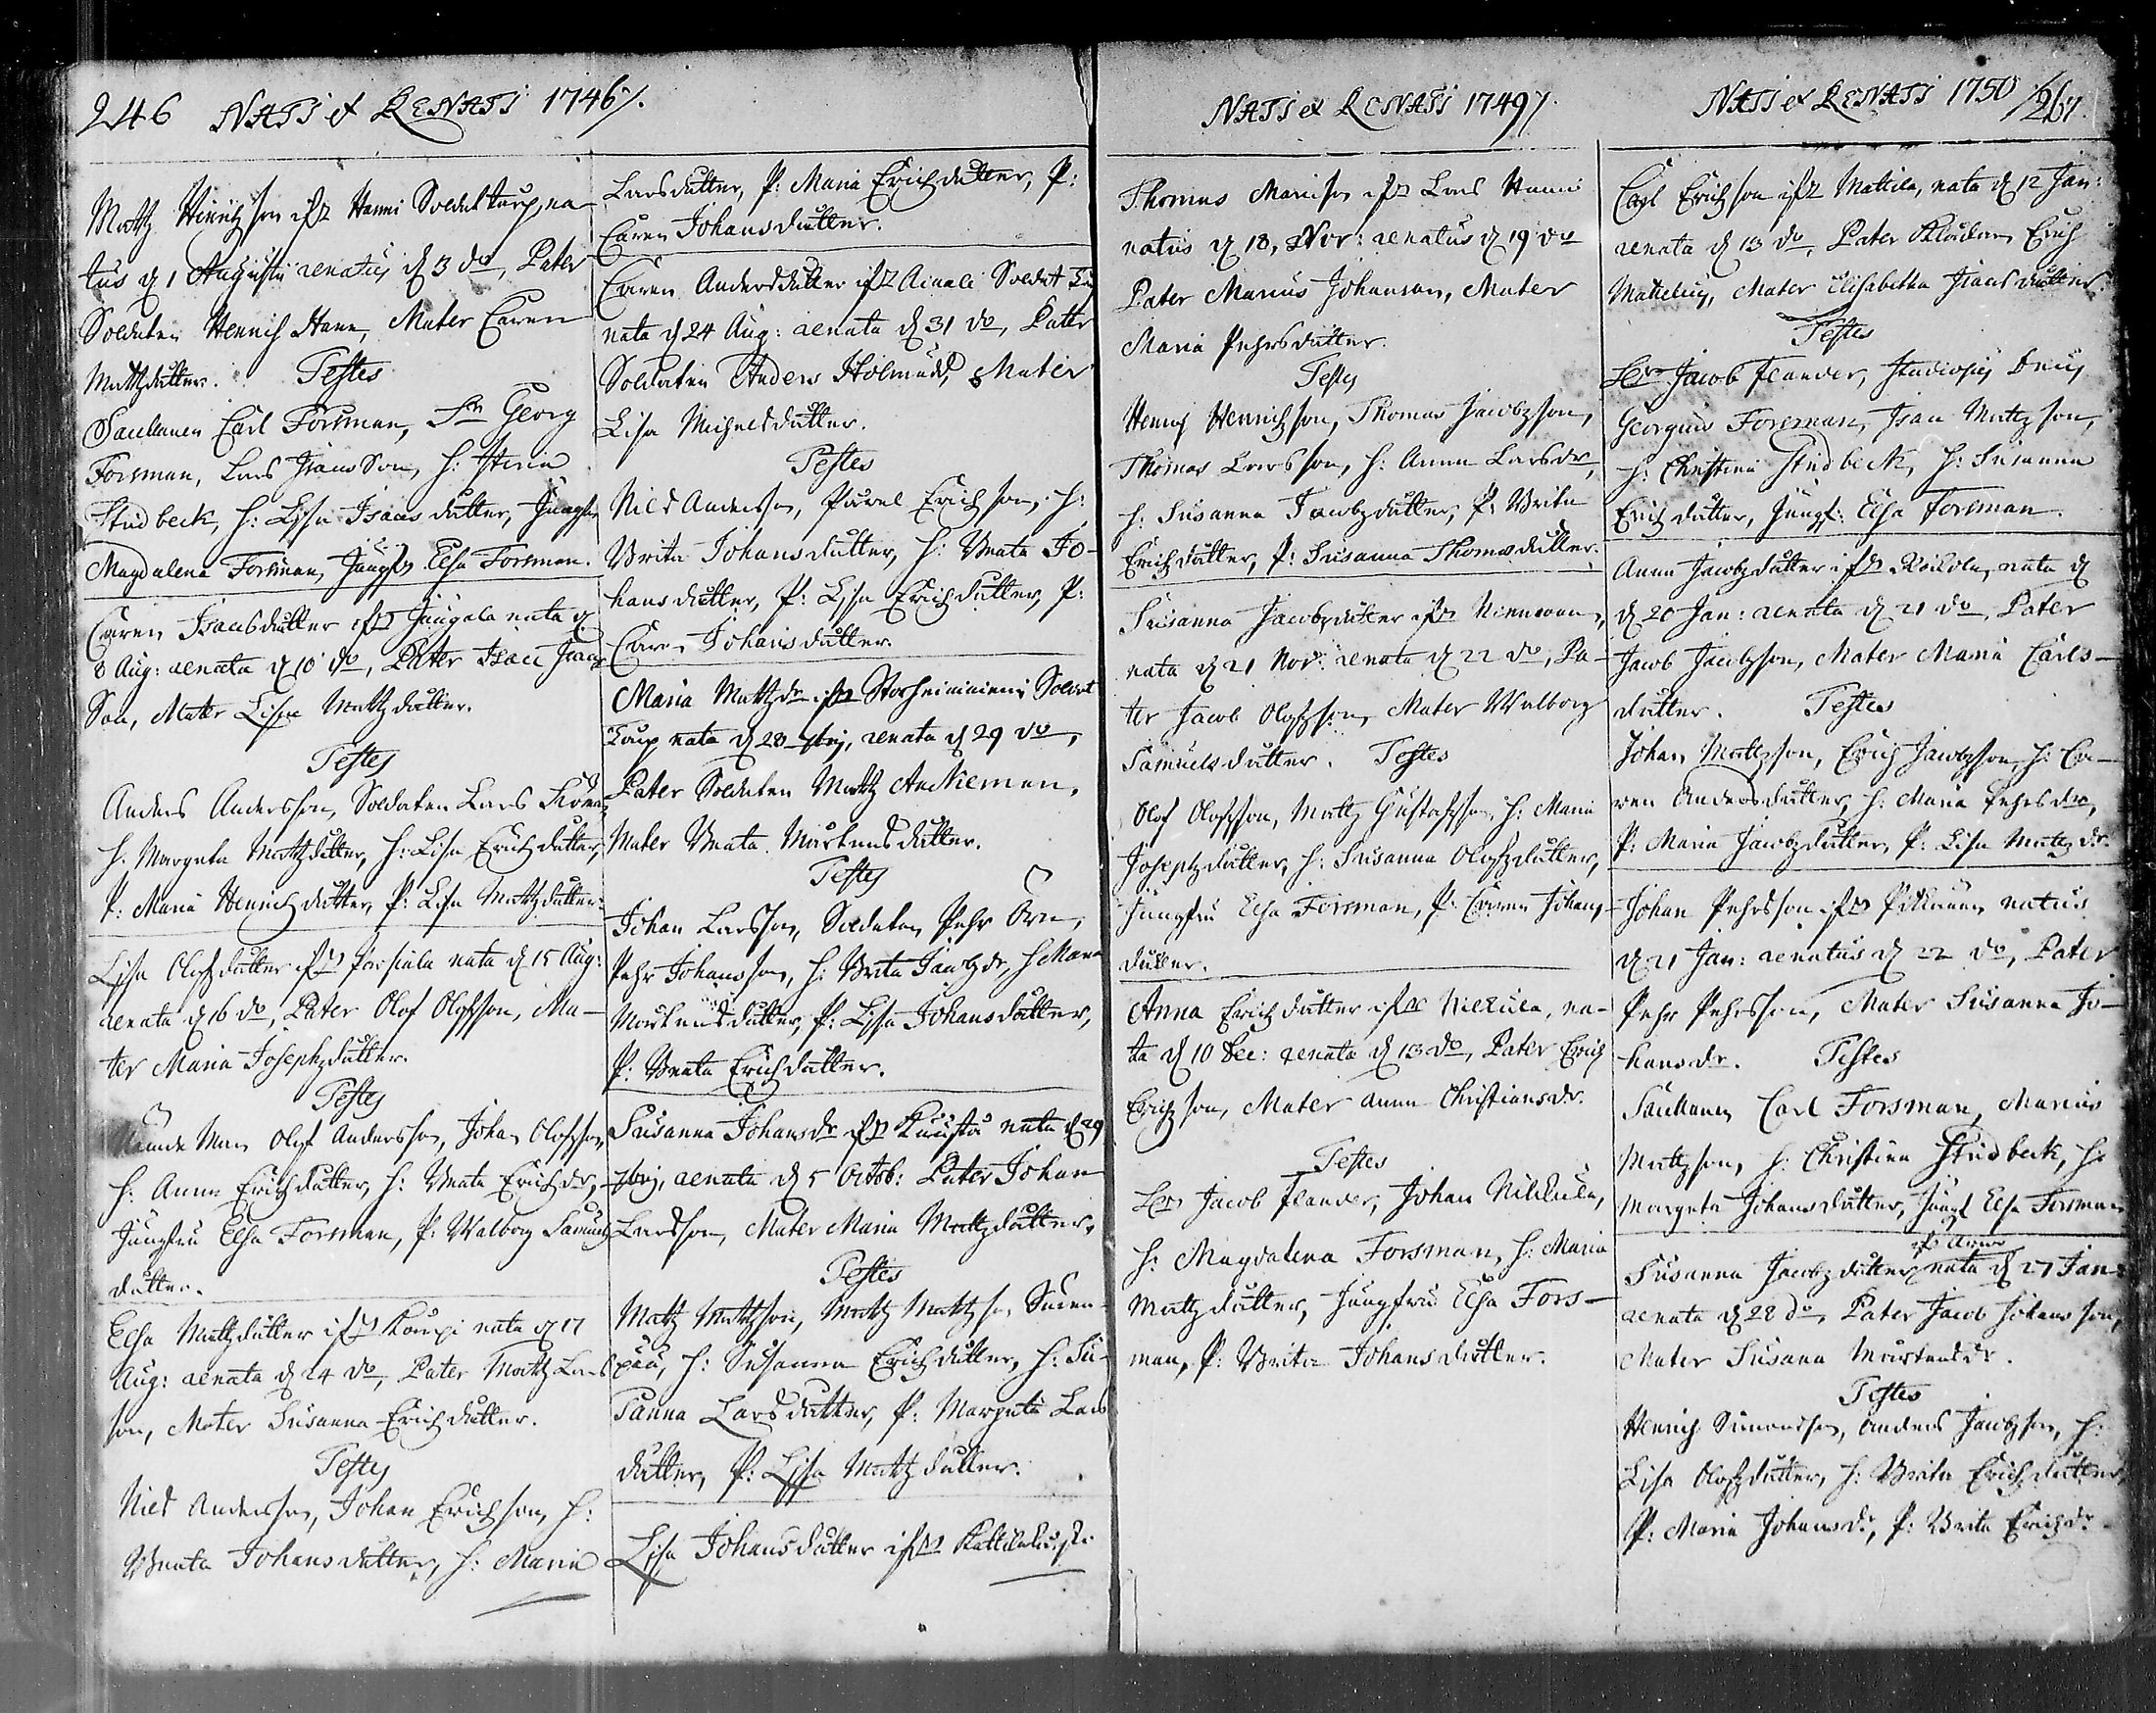 246 NATI et RENATI 1746.
Mattz Hinrichson ifrå Hanni Soldattorp, na-
tus d 1 Augusti renatus d 3 do, Pater
Soldaten Henrich Hane, Mater Caren
Mattzdutter. Testes
Carl Forsman, Georg
Forsman, Lars Isaacsson, h: Stina
Studbeck, h: Lisa Isaacsdutter, Jungfr
Magdalena Forsman, Jungfr Elsa Forsman.
Caren Isaacsdutter ifrå Jaugala nata d
8 Aug: renata d 10 do, Pater Isaac Isaacs
Son, Mater Lisa Mattzdutter.
Testes
Anders Andersson, Soldaten Lars
h. Margeta Mattzdutter, h: Lisa Erichdutter,
P: Maria Henrichdutter, P: Lisa Mattzdutter.
Lisa Olofzdutter ifrå nata d 15 Aug:
renata d 16 do, Pater Olof Olofsson, Ma-
ter Maria Josephzdutter.
Testes
Olof Andersson, Johan Olofsson,
h: Anna Erichdutter, h: Beata Erichdr,
Jungfru Elsa Forsman, P: Walborg Samuels
dutter.
Elsa Mattzdutter ifrå Kaupi nata d 17
Aug: renata d 24 do, Pater Mattz Lars
son, Mater Susanna Erichdutter.
Testes
Nils Andersson, Johan Erichson, h:
Beata Johansdutter, h: Maria
Larsdutter, P: Maria Erichdutter, P:
Caren Johansdutter.
Caren Andersdutter ifrå Soldat
nata d 24 Aug: renata d 31 do, Pater
Soldaten Anders Holmudd, Mater
Lisa Michelsdutter.
Testes
Nils Andersson, Påvel Erichson, h:
Brita Johansdutter, h: Beata Jo-
hansdutter, P: Lisa Erichdutter, P:
Caren Johansdutter.
Maria Mattzdr ifrå Storheinniemi Soldat
Torp nata d 28 7brij, renata d 29 do,
Pater Soldaten Mattz Anckeman,
Mater Beata Mårtensdutter.
Testes
Johan Larsson, Soldaten Pehr Örn,
Pehr Johansson, h: Brita Jacobzdr, h Maria
Mårtensdutter, P: Lisa Johansdutter,
P: Beata Erichdutter.
Susanna Johansdr ifrå Kuusta nata d 29
7brij, renata d 5 Octob: Pater Johan
Larsson, Mater Maria Mattzdutter.
Testes
Mattz Mattzson, Mattz Mattzson
h: Susanna Erichdutter, h: Su-
sanna Larsdutter, P: Margeta Lars
dutter, P: Lisa Mattzdutter.
Lisa Johansdutter ifrå
NATI et RENATI 1749.
Thomas Mariuson ifrå Lars Hanni
natus d 18, Nov: renatus d 19 do
Pater Marius Johanson, Mater
Maria Pehrsdutter.
Testes
Henrich Henrichson, Thomas Jacobzson,
Thomas Larsson, h: Anna Larsdr,
h: Susanna Jacobzdutter, P: Brita
Erichdutter, P: Susanna Thomasdutter.
Susanna Jacobzdutter ifrå
nata d 21 Nov: renata d 22 do, Pa-
ter Jacob Olofzson, Mater Walborg
Samuelsdutter. Testes
Olof Olofsson, Mattz Gustafsson, h: Maria
Josephzdutter, h: Susanna Olofzdutter,
Jungfru Elsa Forsman, P: Caren Johans-
dutter.
Anna Erichdutter ifrå Nickula, na-
ta d 10 Dec: renata d 13 do, Pater Erich
Erichson, Mater Anna Christiansdr.
Testes
Jacob Flander, Johan Nickula,
h: Magdalena Forsman, h: Maria
Mattzdutter, Jungfru Elsa Fors-
man, P: Brita Johansdutter.
NATI et RENATI 1750 267.
Erichson ifrå Mattila, nata d 12 Jan:
renata d 13 do, Pater Erich
Mattelius, Mater Elisabetha Isaacsdutter.
Testes
Jacob Flander, Studiosus
Georgius Forsman, Isaac Mattzson,
h: Christina Studbeck, h: Susanna
Erichdutter, Jungf: Elsa Forsman.
Anna Jacobzdutter ifrå nata d
d 20 Jan: renata d 21 do, Pater
Jacob Jacobzson, Mater Maria Carls-
dutter. Testes
Johan Mattzson, Erich Jacobzson, h: Ca-
ren Andersdutter, h: Maria Pehrsdr,
P: Maria Jacobzdutter, P: Lisa Mattzdr.
Johan Pehrsson ifrå natus
d 21 Jan: renatus d 22 do, Pater
Pehr Pehrsson, Mater Susanna Jo-
hansdr. Testes
Carl Forsman, Marius
Mattzson, h: Christina Studbeck, h:
Margeta Johansdutter, Jungf Elsa Forsman
Susanna Jacobzdutter nata d 27 Jan:
renata d 28 do, Pater Jacob Johansson,
Mater Susana Mårtensdr.
Testes
Henrich Simonsson, Anders Jacobzson, h:
Lisa Olofzdutter, h: Brita Erichdutter,
P: Maria Johansdr, P: Brita Erichdr.